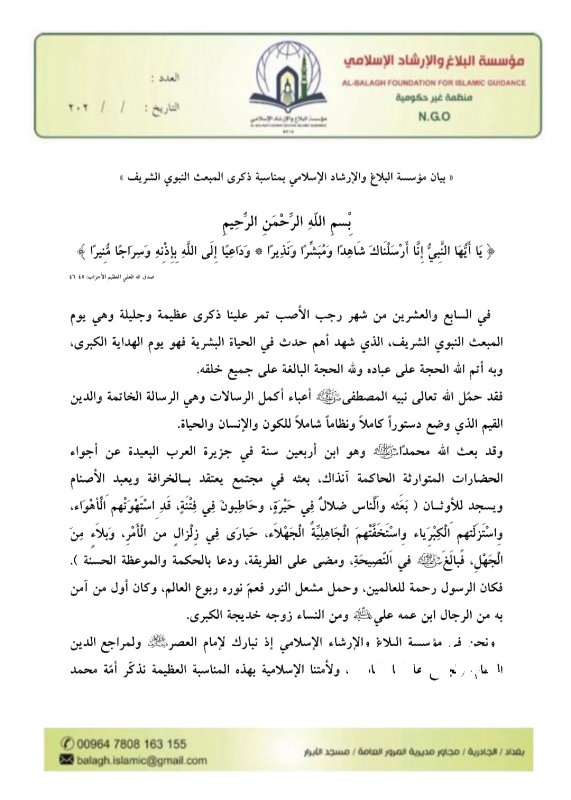 مؤسسة البلاغ والإرشاد الإسلامي
AL-BALAGH FOUNDATION FOR ISLAMIC GUIDANCE
منظمة غير حكومية
N.G.O
مؤسسة البلاغ والإرشاد الإسلامي
العدد :
التاريخ : / / ٢٠٢
« بيان مؤسسة البلاغ والإرشاد الإسلامي بمناسبة ذكرى المبعث النبوي الشريف »
بِسمِ اللَّهِ الرَّحْمَنِ الرَّحِيمِ
﴿ يَا أَيُّهَا النَّبِيُّ إِنَّا أَرْسَلْنَاكَ شَاهِدًا وَمُبَشِّرًا وَنَذِيرًا * وَدَاعِيًا إِلَى اللَّهِ بِإِذْنِهِ وَسِرَاجًا مُّنِيرًا ﴾
صدق الله العلي العظيم الأحزاب: ٤٥ ٤٦
في السابع والعشرين من شهر رجب الأصب تمر علينا ذكرى عظيمة وجليلة وهي يوم
المبعث النبوي الشريف، الذي شهد أهم حدث في الحياة البشرية فهو يوم الهداية الكبرى،
وبه أتم الله الحجة على عباده ولله الحجة البالغة على جميع خلقه.
فقد حمّل الله تعالى نبيه المصطفى أعباء أكمل الرسالات وهي الرسالة الخاتمة والدين
القيم الذي وضع دستوراً كاملاً ونظاماً شاملاً للكون والإنسان والحياة.
وقد بعث الله محمدًا وهو ابن أربعين سنة في جزيرة العرب البعيدة عن أجواء
الحضارات المتوارثة الحاكمة آنذاك، بعثه في مجتمع يعتقد بالخرافة ويعبد الأصنام
ويسجد للأوثان ( بَعَثه والنَّاس ضلالٌ فِي حَيْرَةٍ، وحَاطِبونَ فِي فِتْنَةٍ، قَدِ اسْتَهْوَتْهم الْأَهْوَاء،
واسْتَزَلَّتهم الْكِبْرِياء واسْتَخَفَّتْهُم الْجَاهِلِيَّةُ الْجَهْلَاء، حَيارَى فِي زِلْزَال مِن الْأَمْرِ، وبَلَاءٍ مِنَ
الْجَهْلِ، فَبالَغَ فِي النَّصِيحَةِ، ومضى على الطريقة، ودعا بالحكمة والموعظة الحسنة ).
فكان الرسول رحمة للعالمين، وحمل مشعل النور فعمّ نوره ربوع العالم، وكان أول من آمن
به من الرجال ابن عمه علي ومن النساء زوجه خديجة الكبرى.
ونحن في مؤسسة البلاغ والإرشاد الإسلامي إذ نبارك لإمام العصر ولمراجع الدين
، ولأمتنا الإسلامية بهذه المناسبة العظيمة نذكّر أمّة محمد
00964 7808 163 155
balagh.islamic@gmail.com
بغداد / الجادرية / مجاور مديرية المرور العامة / مسجد الأبرار